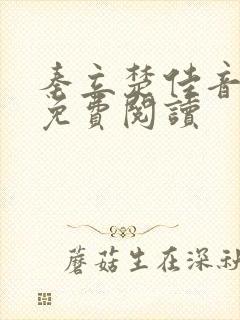 秦立楚佳音
免費閱讀
蘑菇生在深秋